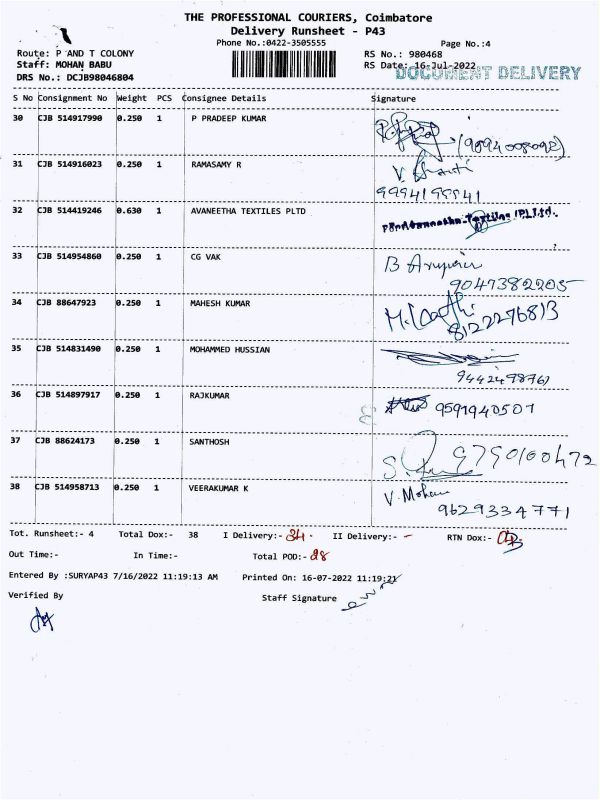 THE PROFESSIONAL COURIERS, Coimbatore
Delivery Runsheet - P43
Phone No.:0422-3505555
Page No.:4
Route: P AND T COLONY
RS No.: 980468
Staff: MOHAN BABU
RS Date: 16-Jul-2022
DRS No.: DCJB98046804
DOCUMENT DELIVERY
S No Consignment No Weight PCS Consignee Details Signature
30 CJB 514917990 0.250 1 P PRADEEP KUMAR
31 CJB 514916023 0.250 1 RAMASAMY R
32 CJB 514419246 0.630 1 AVANEETHA TEXTILES PLTD
33 CJB 514954860 0.250 1 CG VAK
9047382205
34 CJB 88647923 0.250 1 MAHESH KUMAR
8122276813
35 CJB 514831490 0.250 1 MOHAMMED HUSSIAN
36 CJB 514897917 0.250 1 RAJKUMAR
9591940507
37 CJB 88624173 0.250 1 SANTHOSH
9790100472
38 CJB 514958713 0.250 1 VEERAKUMAR K
V. Mohan
9629334771
Tot. Runsheet:- 4 Total Dox:- 38 I Delivery:- 34. II Delivery:- - RTN Dox:-
Out Time:- In Time:- Total POD:- 28
Entered By :SURYAP43 7/16/2022 11:19:13 AM Printed On: 16-07-2022 11:19:21
Verified By Staff Signature